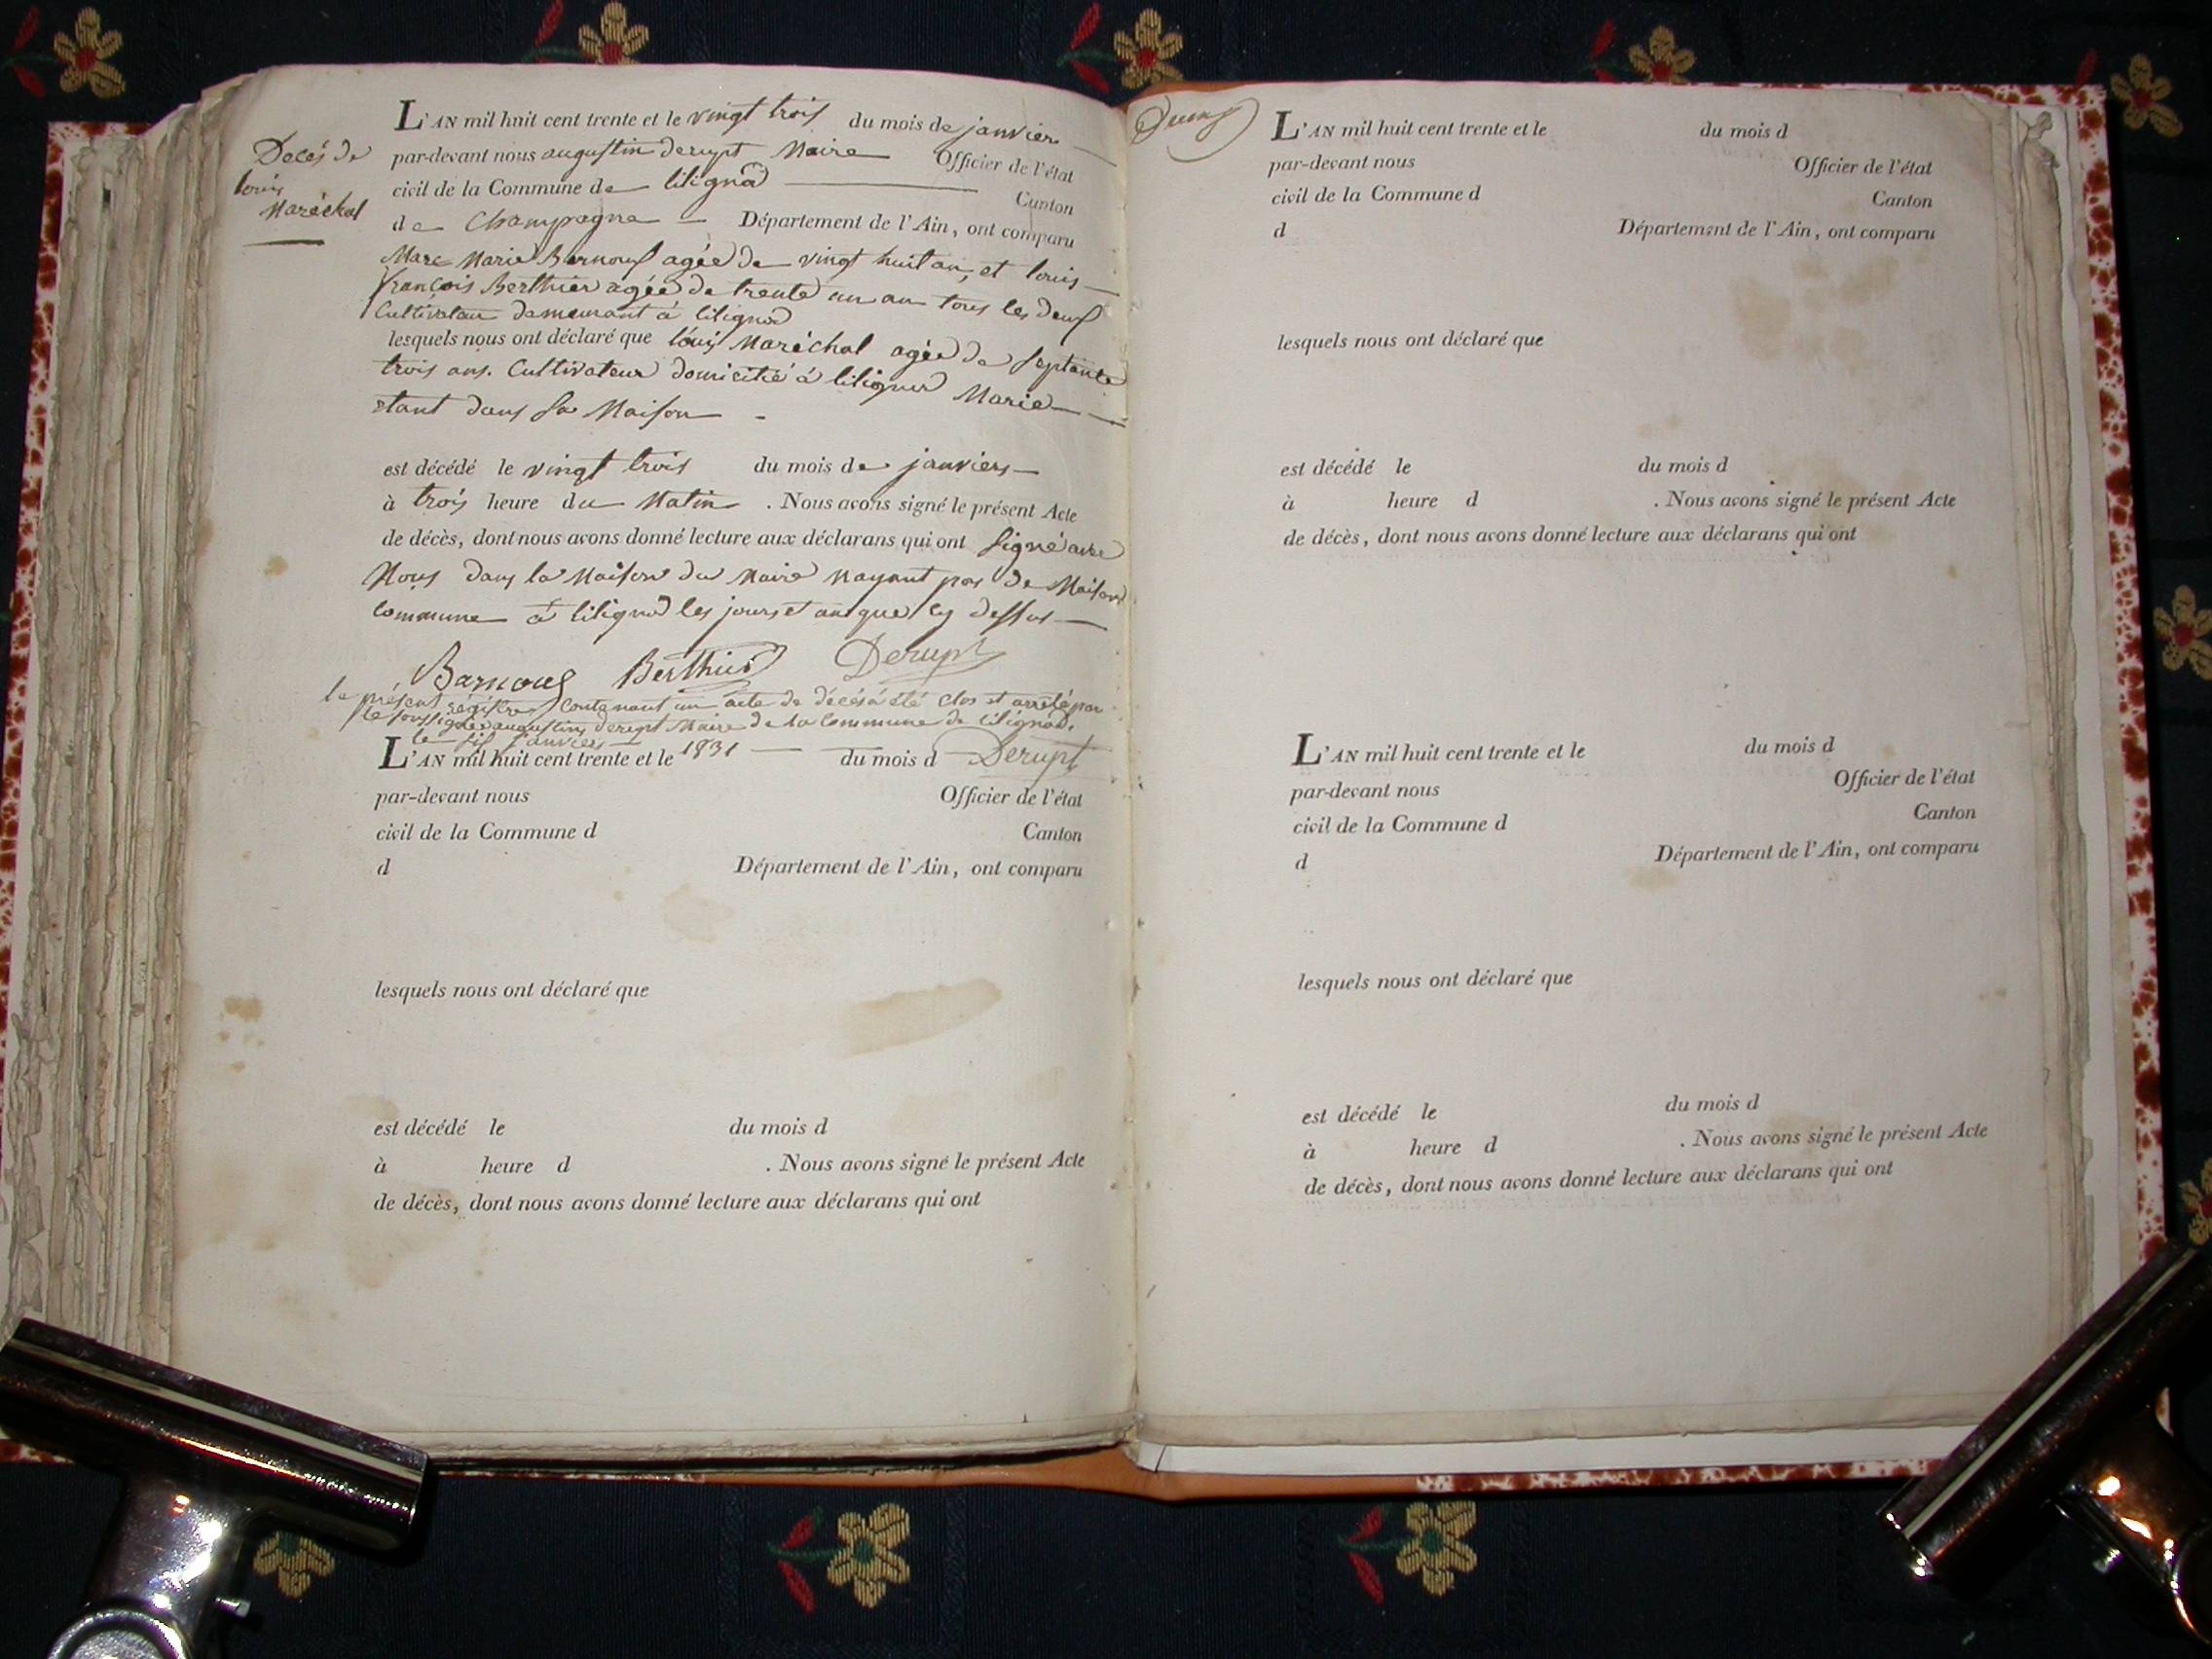 Decés de
louis
Maréchal
L'AN mil huit cent trente et le vingt trois du mois de janvier
par-devant nous augustin derupt Maire Officier de l'état
civil de la Commune de lilignod Canton
de Champagne Département de l'Ain, ont comparu
Marc Marie Bernouf agée de vingt huit an, et louis
françois Berthier agée de trente un an tous les deux
Cultivateur demeurant á lilignod
lesquels nous ont déclaré que louis Maréchal agée de septante
trois ans. Cultivateur domicilié á lilignod Marie
etant dans sa Maison
est décédé le vingt trois du mois de janviers
à trois heure du Matin . Nous avons signé le présent Acte
de décès, dont nous avons donné lecture aux déclarans qui ont signé avec
Nous dans la Maison du Maire Nayant pas de Maison
Commune á lilignod les jours et an que cy dessus
Barnoud Berthier Derupt
le présent régistre Contenant un acte de décés á été Clos et arrêté par
le soussigné augustin derupt Maire de la Commune de lilignod.
le six janviers
L'AN mil huit cent trente et le 1831 du mois d Derupt
par-devant nous Officier de l'état
civil de la Commune d Canton
d Département de l'Ain, ont comparu
lesquels nous ont déclaré que
est décédé le du mois d
à heure d . Nous avons signé le présent Acte
de décès, dont nous avons donné lecture aux déclarans qui ont
L'AN mil huit cent trente et le du mois d
par-devant nous Officier de l'état
civil de la Commune d Canton
d Département de l'Ain, ont comparu
lesquels nous ont déclaré que
est décédé le du mois d
à heure d . Nous avons signé le présent Acte
de décès, dont nous avons donné lecture aux déclarans qui ont
L'AN mil huit cent trente et le du mois d
par-devant nous Officier de l'état
civil de la Commune d Canton
d Département de l'Ain, ont comparu
lesquels nous ont déclaré que
est décédé le du mois d
à heure d . Nous avons signé le présent Acte
de décès, dont nous avons donné lecture aux déclarans qui ont